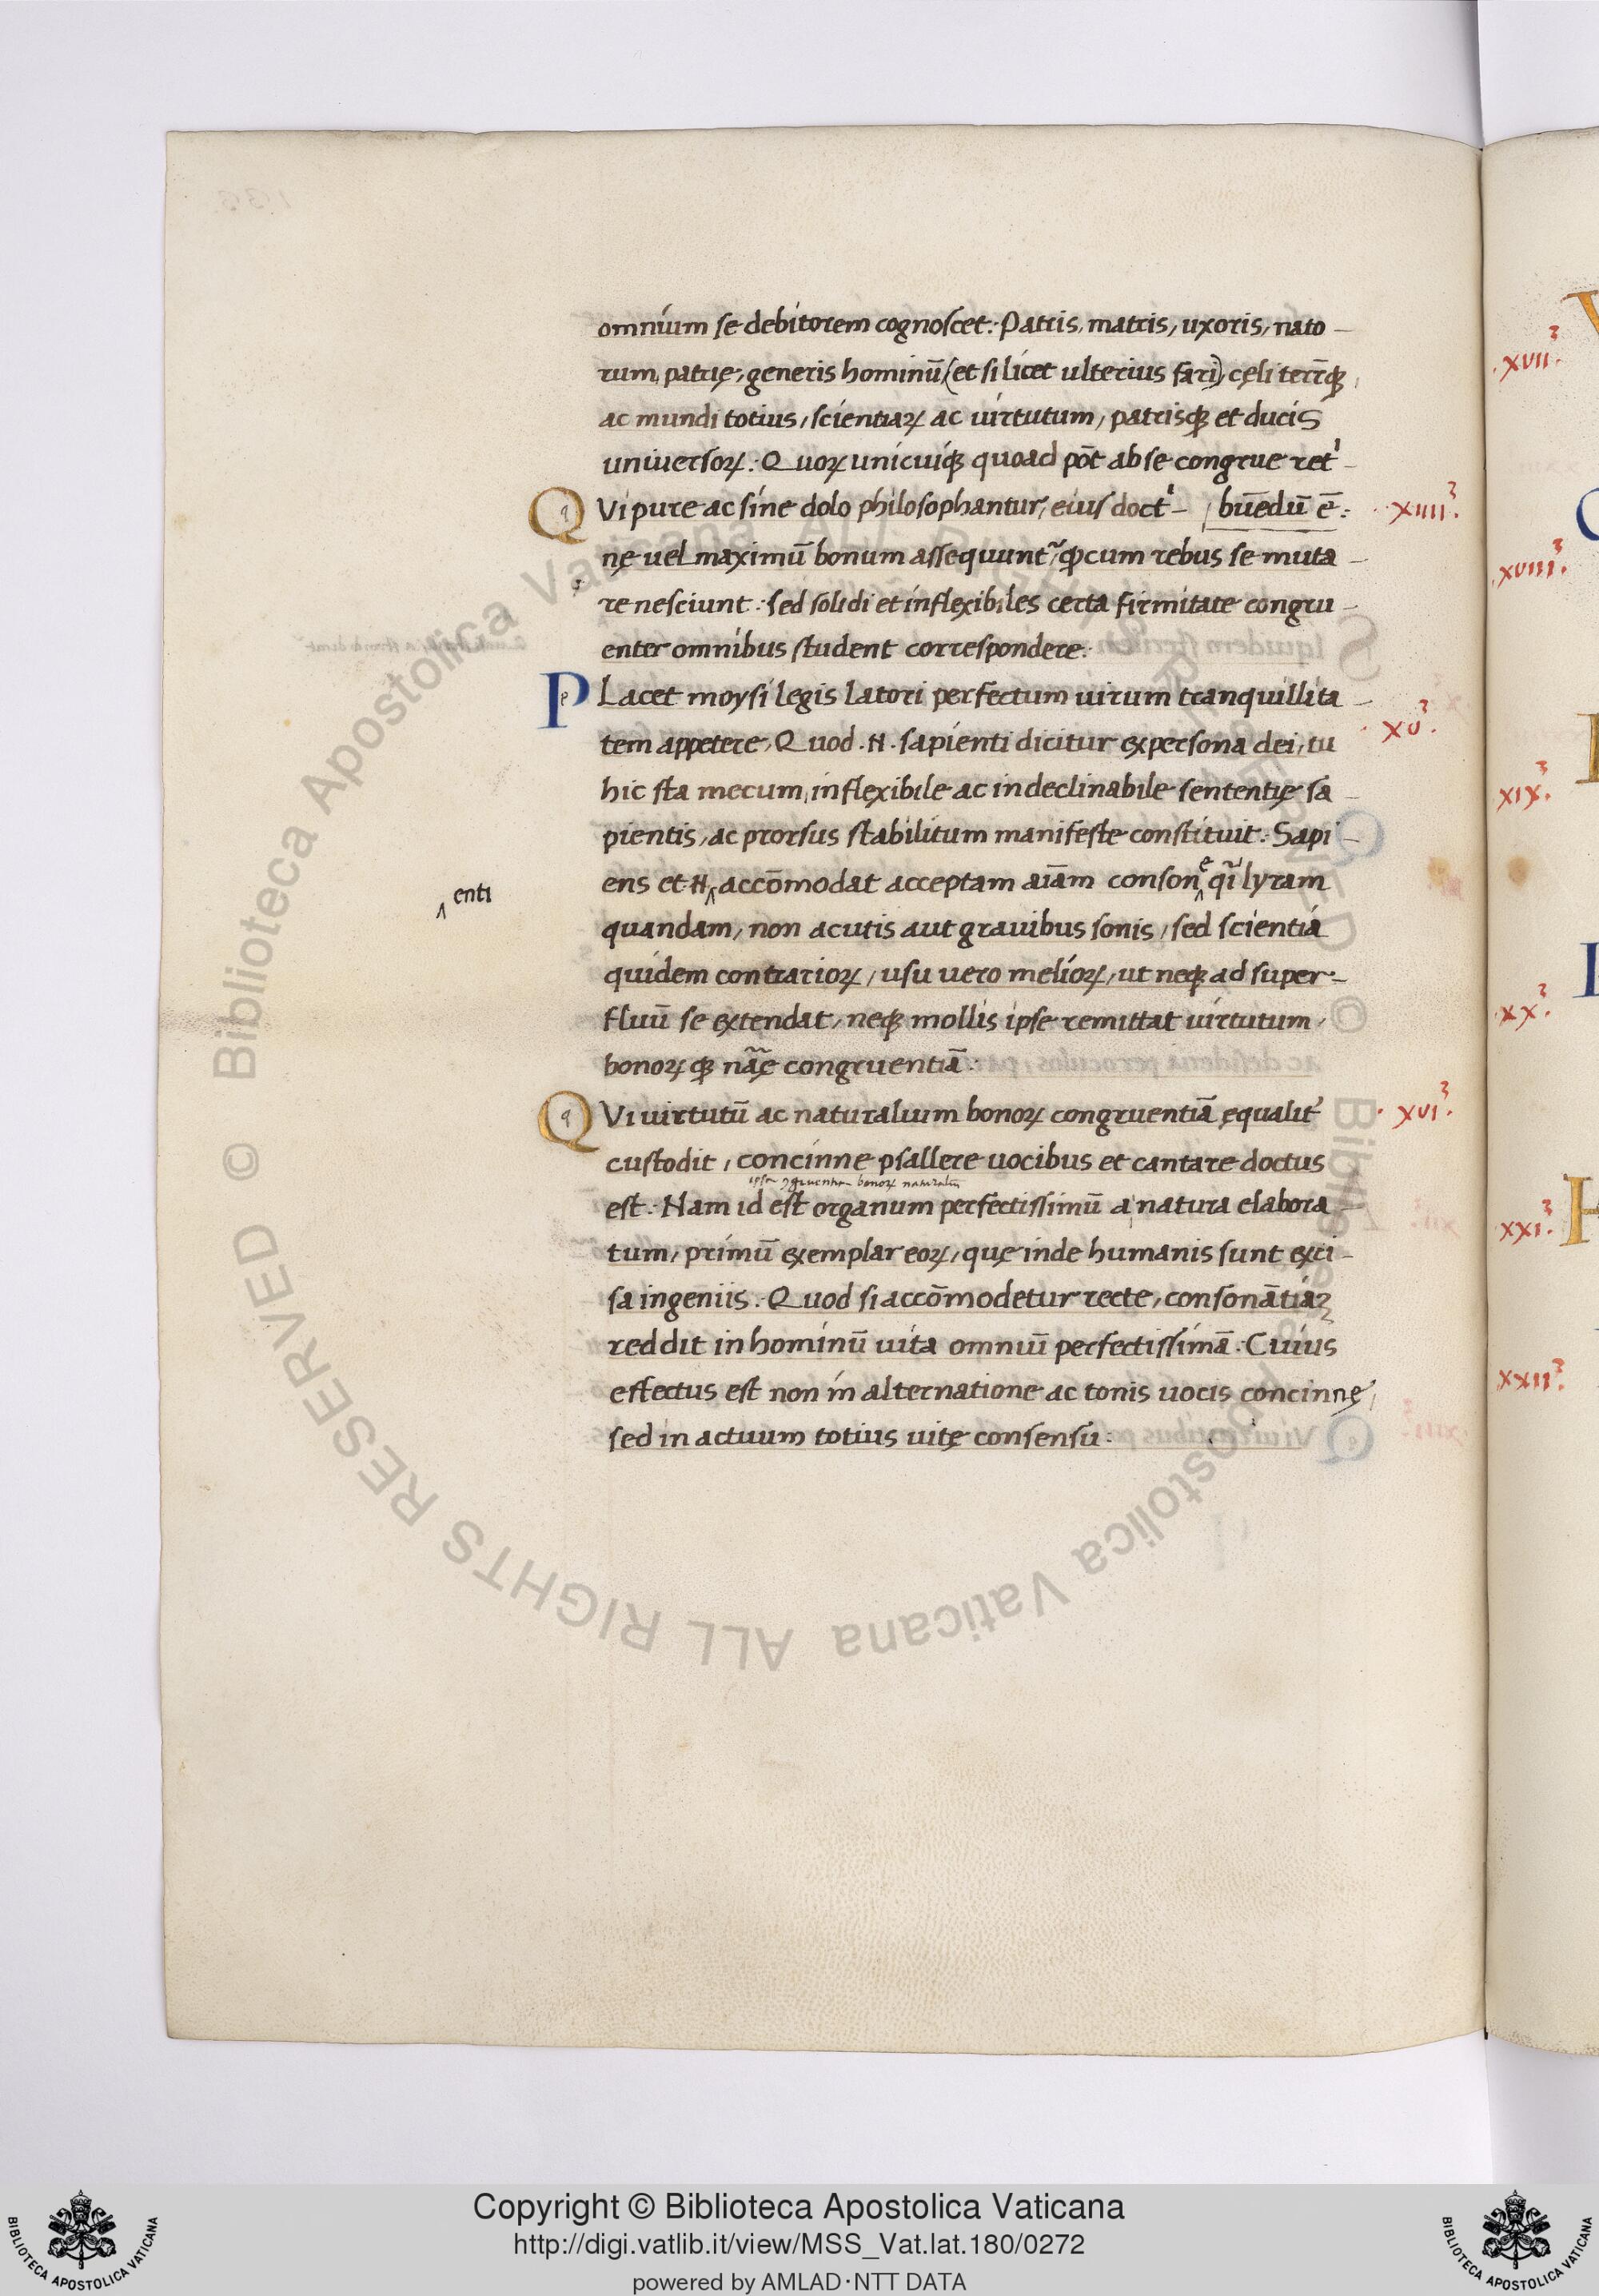 omnium se debitorem cognoscet: Patris, matris, uxoris, nato
rum, patrię, generis hominū (et si licet ulterius fari) cęli terręqꝫ
ac mundi totius, scientiaꝝ ac uirtutum, patrisqꝫ et ducis
uniuersoꝝ. Quoꝝ unicuiqꝫ quoad pōt ab se congrue ret'
buēdū ē:
QVi pure ac sine dolo philosophantur, eius doct'
XIIII
nę uel maximū bonum assequunt~ ꝙ cum rebus se muta
re nesciunt: sed solidi et inflexibiles certa firmitate congru
enter omnibus student correspondere:
PLacet moysi legis latori perfectum uirum tranquillita
XV
tem appetere, Quod .N. sapienti dicitur ex persona dei, tu
hic sta mecum, inflexibile ac indeclinabile sententię sa
pientis, ac prorsus stabilitum manifeste constituit. Sapi
enti
ens et .N. accōmodat acceptam aīam consone qī lyram
quandam, non acutis aut grauibus sonis, sed scientia
quidem contrarioꝝ, usu uero melioꝝ, ut neqꝫ ad super
fluū se extendat, neqꝫ mollis ipse remittat uirtutum
bonoꝝqꝫ nāę congruentiā.
QVi uirtutū ac naturalium bonoꝝ congruentiā ęqualit'
XVI
custodit, concinne psallere uocibus et cantare doctus
ipsa ꝯgruentia bonoꝝ naturaliū
est. Nam id est organum perfectissimū a natura elabora
tum, primū exemplar eoꝝ, quę inde humanis sunt exci
sa ingeniis. Quod si accōmodetur recte, consonātiaꝫ
reddit in hominū uita omniū perfectissimā. Cuius
effectus est non in alternatione ac tonis uocis concinnę,
sed in actuum totius uitę consensu.
XVII
XVIII
XIX
XX
XXI
XXII
Copyright © Biblioteca Apostolica Vaticana
http://digi.vatlib.it/view/MSS_Vat.lat.180/0272
powered by AMLAD·NTT DATA
BIBLIOTECA APOSTOLICA VATICANA
BIBLIOTECA APOSTOLICA VATICANA
© Biblioteca Apostolica Vaticana ALL RIGHTS RESERVED © Biblioteca Apostolica Vaticana ALL RIGHTS RESERVED